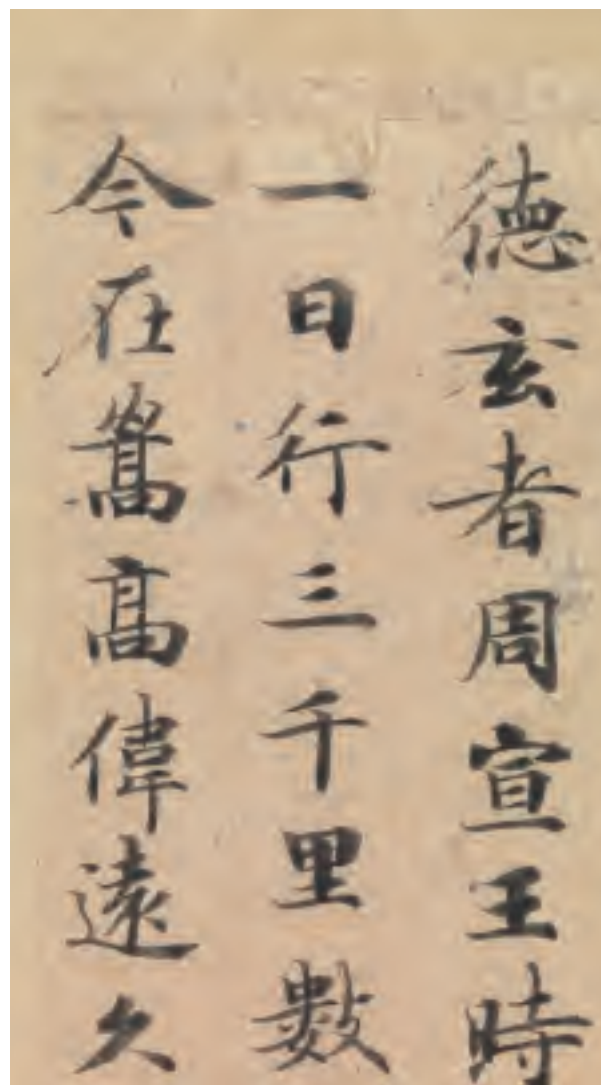 德玄者周宣王時
一日行三千里數
今在嵩高偉遠久